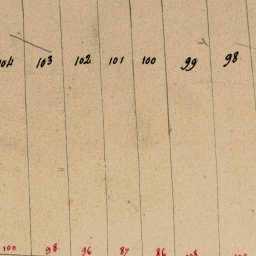 104 103 102 101 100 99 98
100 98 96 87 86